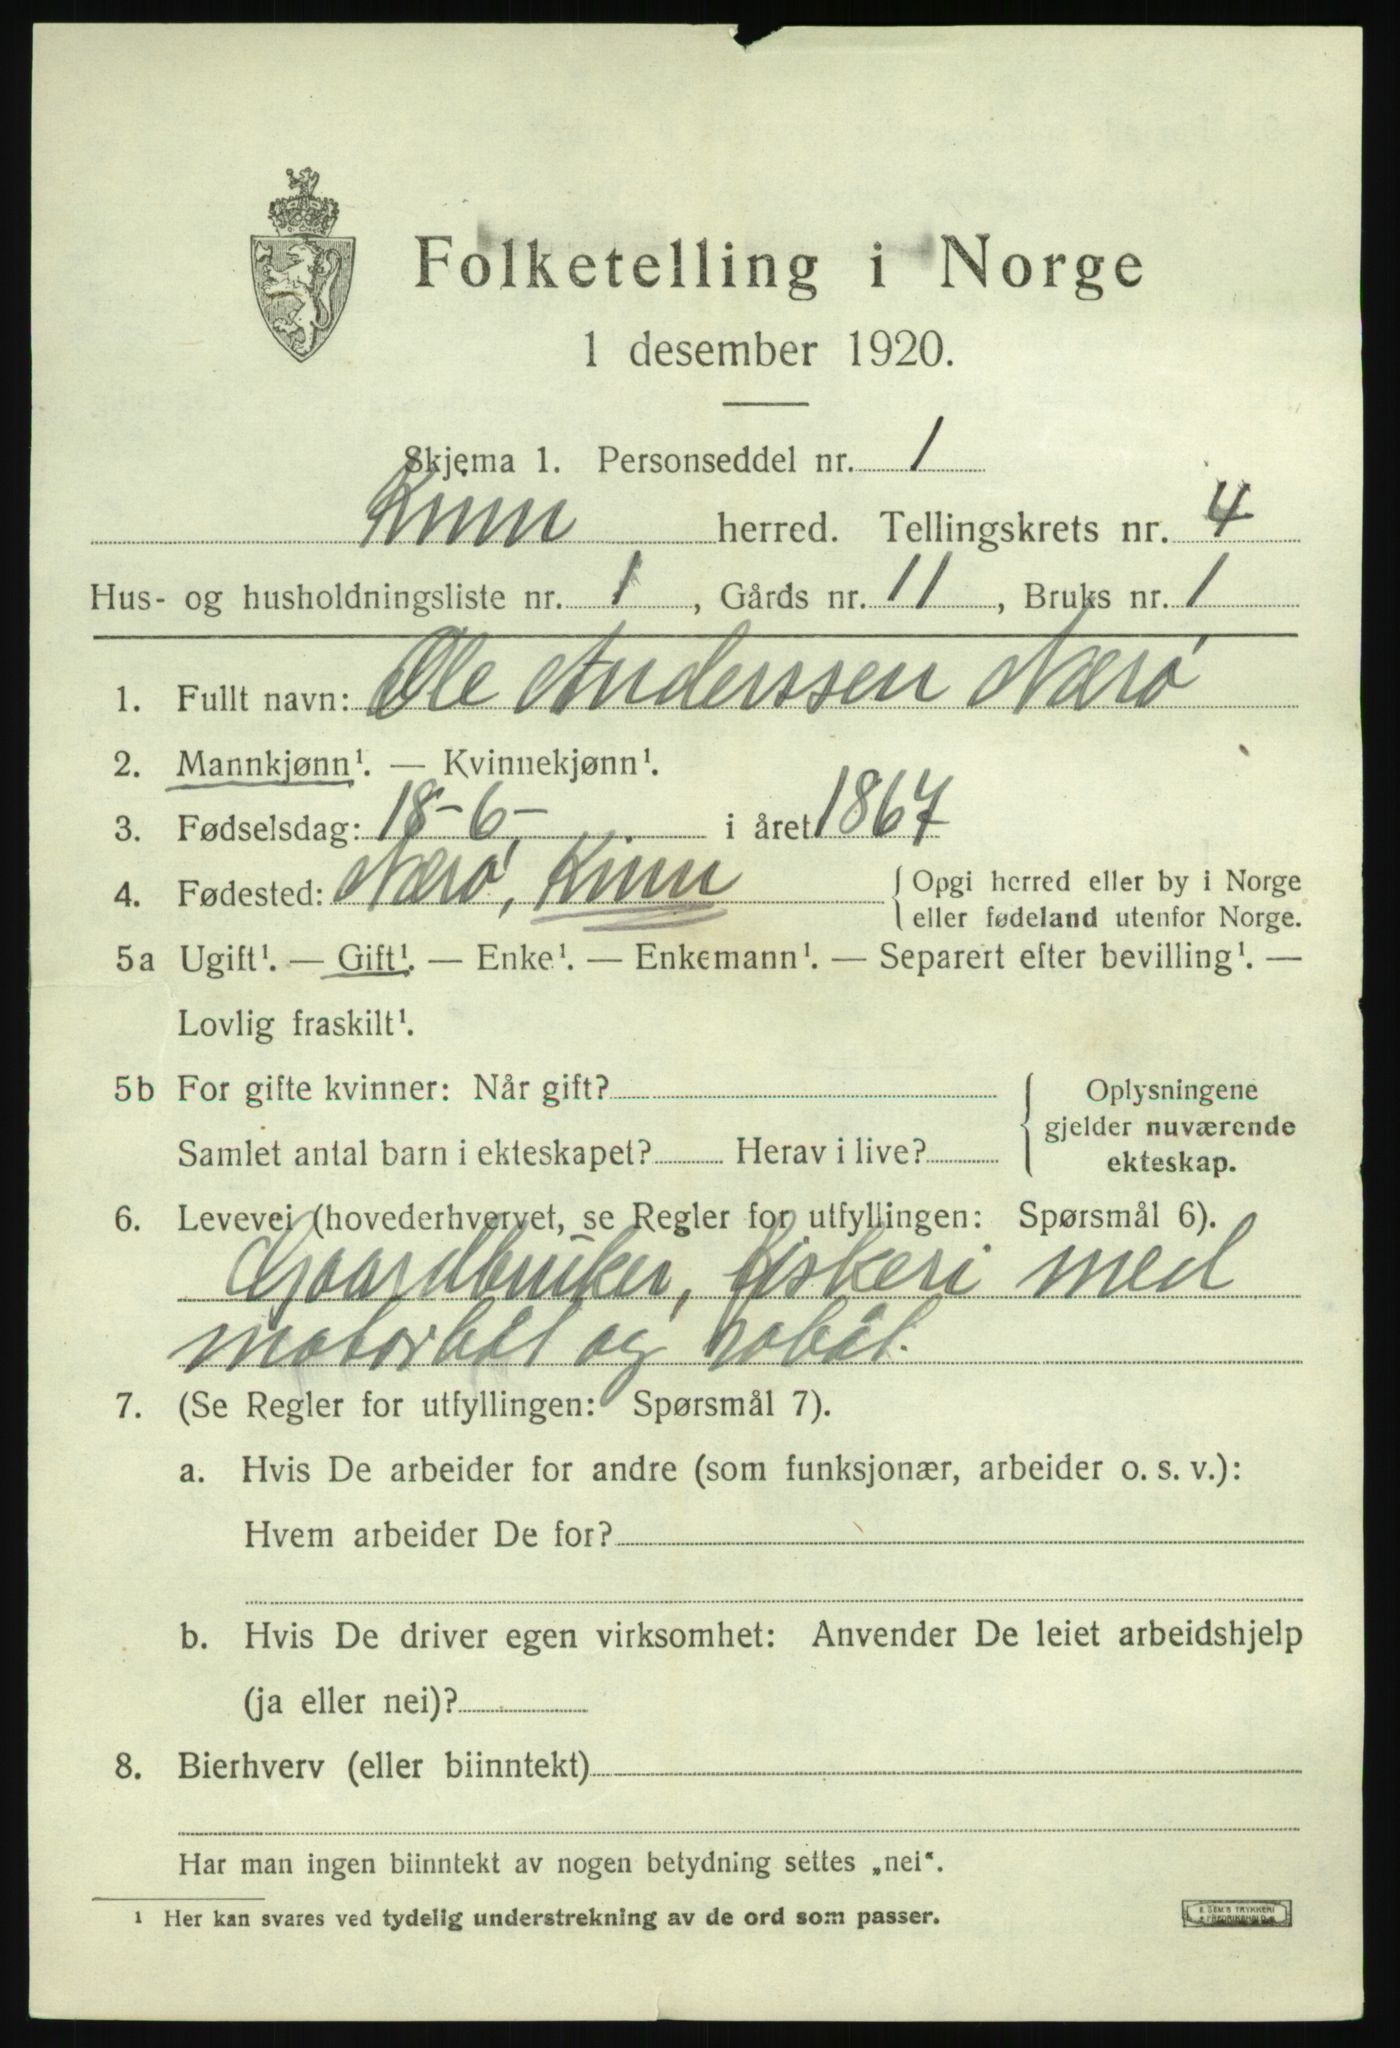 Folketelling i Norge
1 desember 1920.
Skjema 1. Personseddel nr. 1
Kinn herred. Tellingskrets nr. 4
Hus- og husholdningsliste nr. 1, Gårds nr. 11, Bruks nr. 1
1. Fullt navn: Ole Anderssen Nærö
2. Mannkjønn¹. — Kvinnekjønn¹.
3. Fødselsdag: 18-6- i året 1867
4. Fødested: Nærö, Kinn {Opgi herred eller by i Norge
eller fødeland utenfor Norge.
5a Ugift¹. — Gift¹. — Enke¹. — Enkemann¹. — Separert efter bevilling¹. —
Lovlig fraskilt¹.
5b For gifte kvinner: Når gift? { Oplysningene
gjelder nuværende
Samlet antal barn i ekteskapet? Herav i live? ekteskap.
6. Levevei (hovederhvervet, se Regler for utfyllingen: Spørsmål 6).
Gaardbruker, fiskeri med
motorbåt og robåt.
7. (Se Regler for utfyllingen: Spørsmål 7).
a. Hvis De arbeider for andre (som funksjonær, arbeider o. s. v.):
Hvem arbeider De for?
b. Hvis De driver egen virksomhet: Anvender De leiet arbeidshjelp
(ja eller nei)?
8. Bierhverv (eller biinntekt)
Har man ingen biinntekt av nogen betydning settes „nei“.
¹ Her kan svares ved tydelig understrekning av de ord som passer.
E. SEM'S TRYKKERI
FREDRIKSHALD